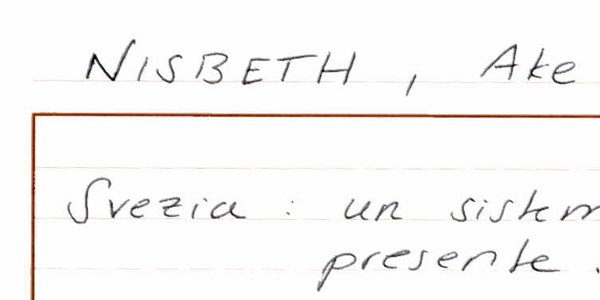 NISBETH, Ake
Svezia: un sistem
presente.